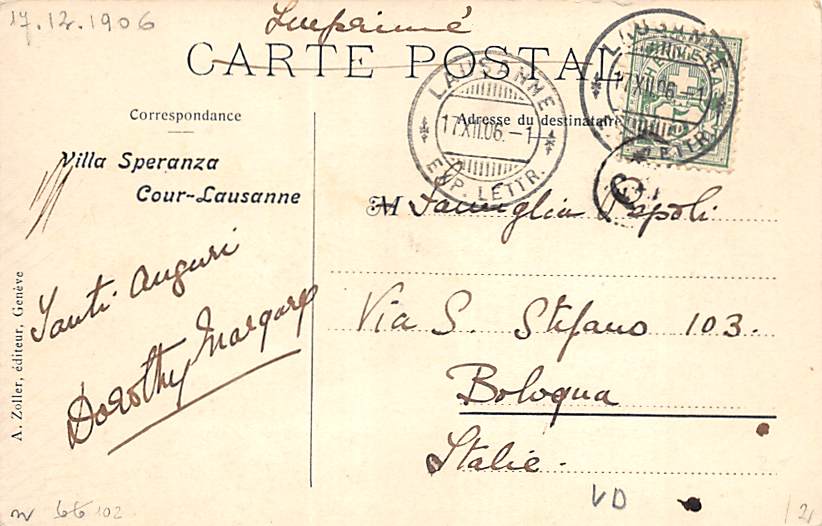 17.12.1906
Imprimé
CARTE POSTALE
LAUSANNE
17.XII.06.-1
EXP. LETTR.
LAUSANNE
17.XII.06.-1
EXP. LETTR.
Correspondance
Adresse du destinataire
Villa Speranza
Cour-Lausanne
M Famiglia
Via S. Stefano 103.
Bologna
Italie.
Tanti auguri
Dorothy
A. Zoller, éditeur, Genève
VD
102